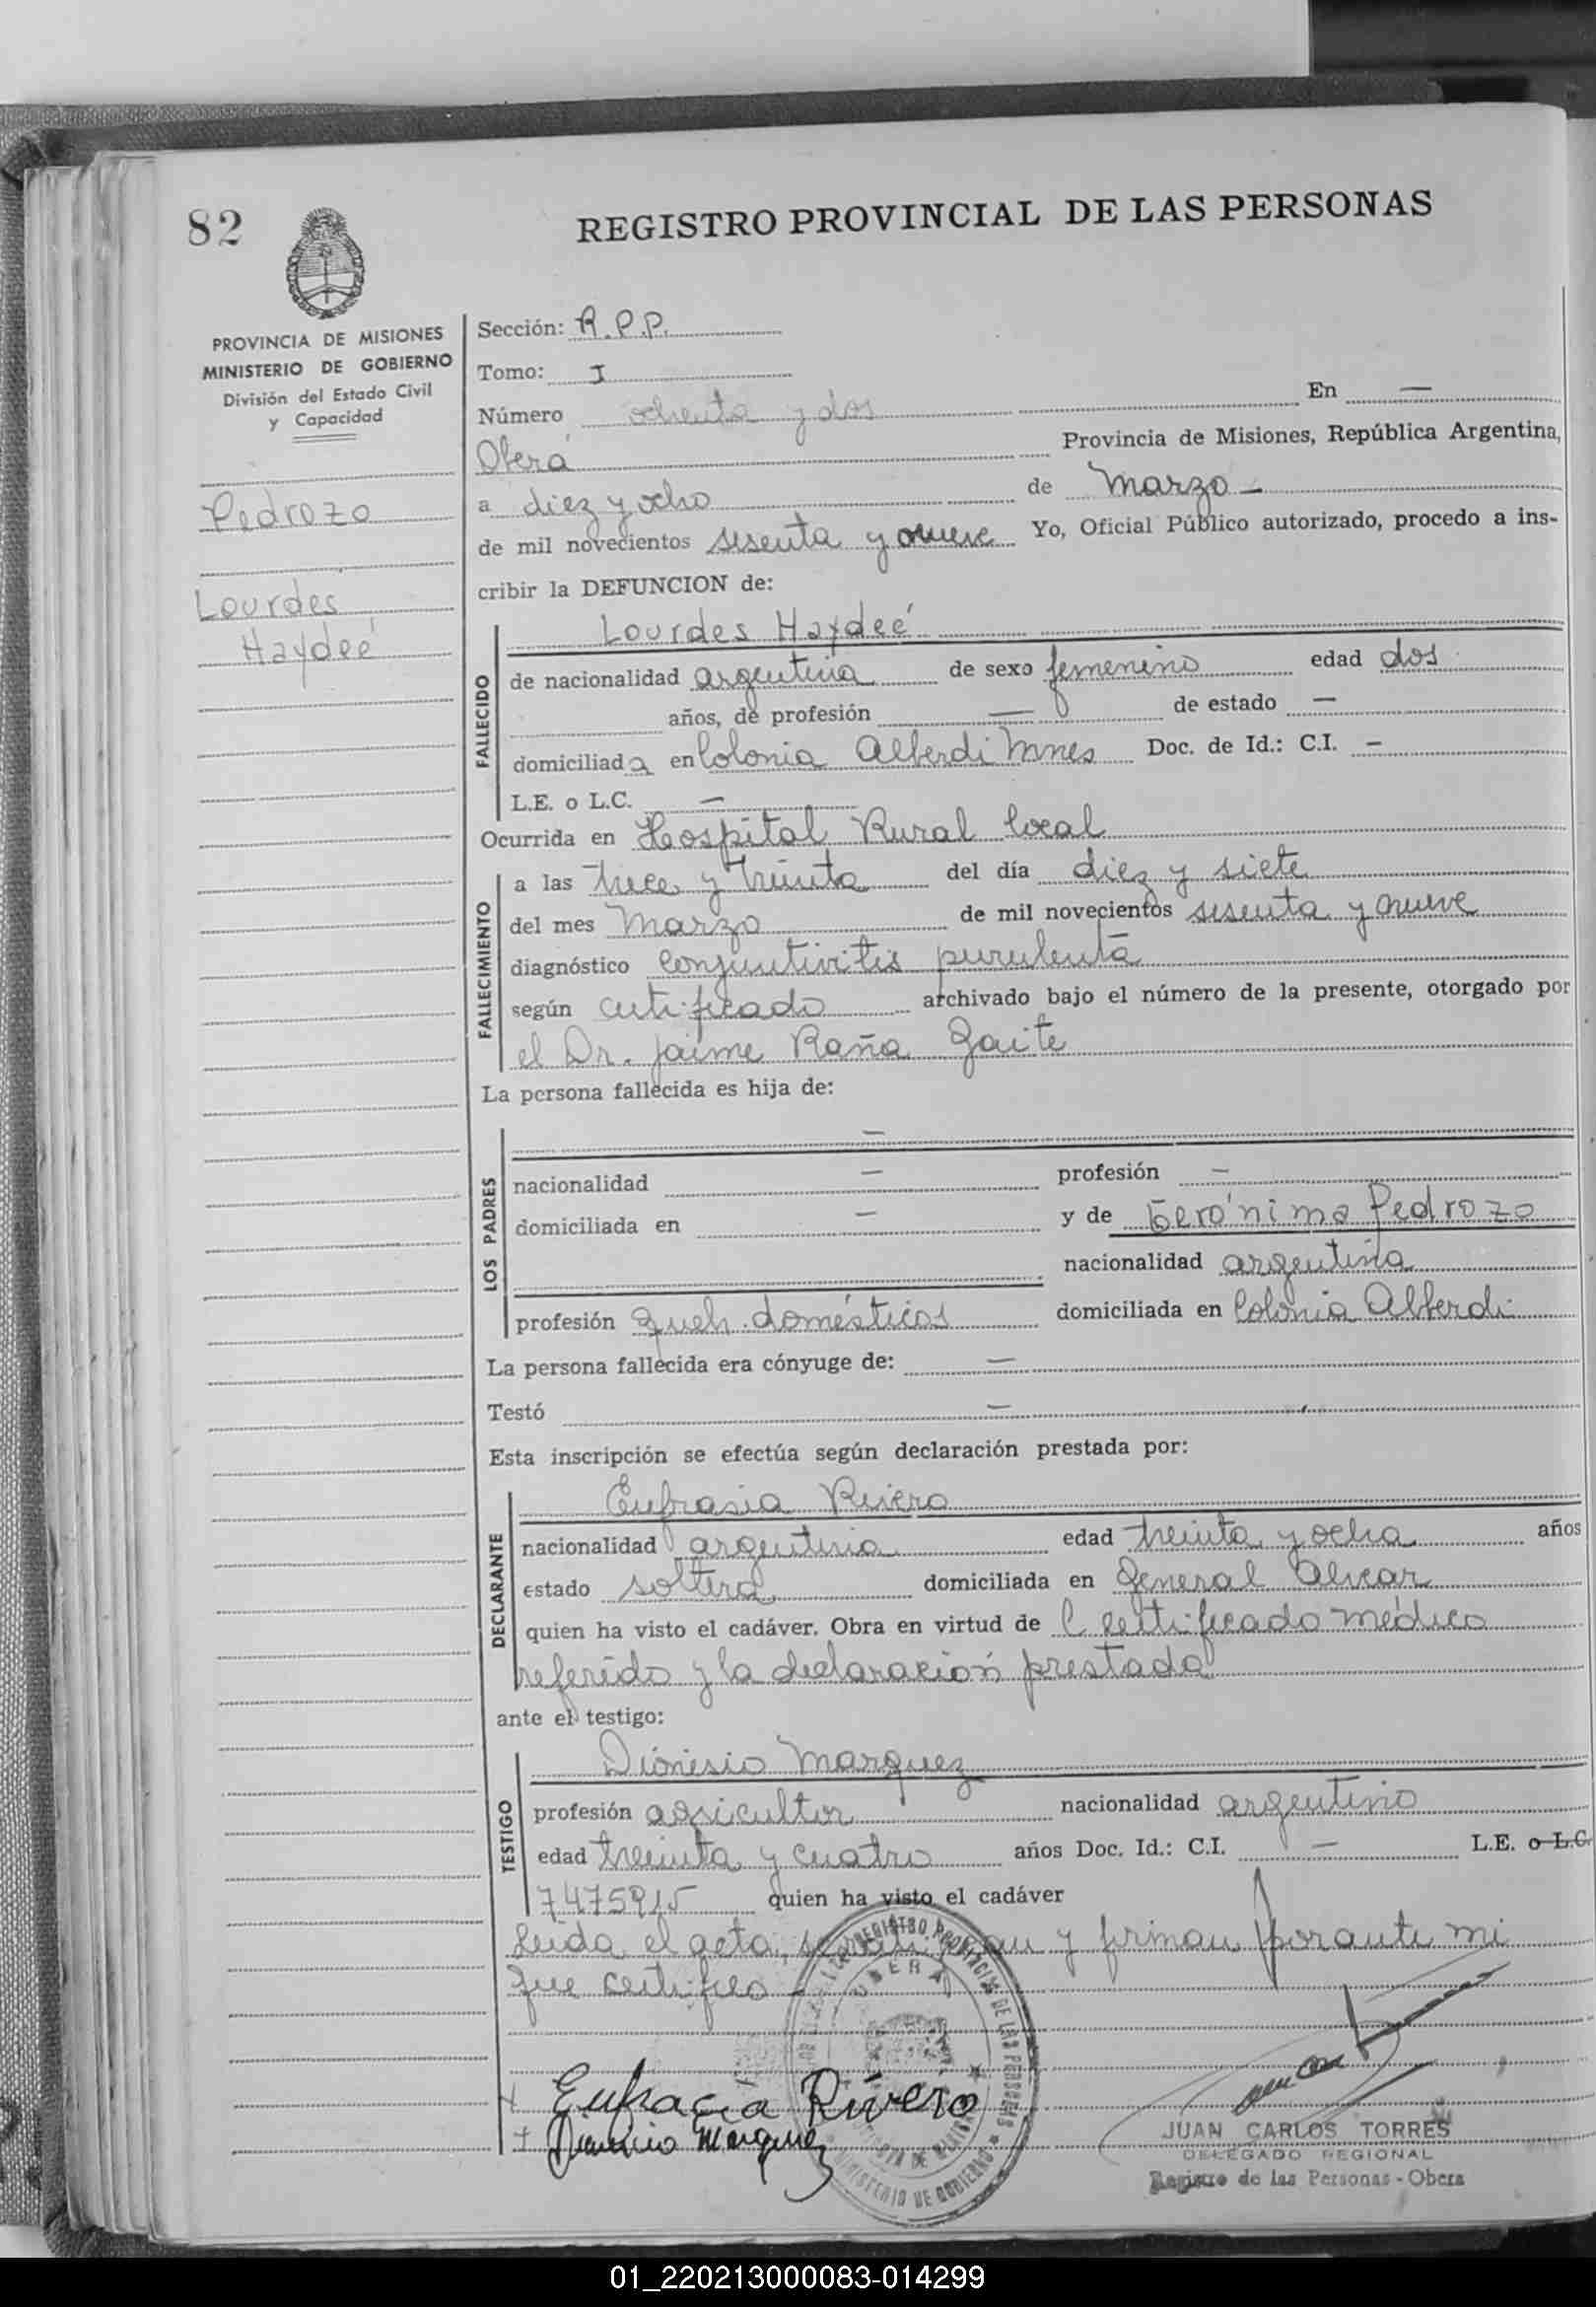 82
REGISTRO PROVINCIAL DE LAS PERSONAS
PROVINCIA DE MISIONES
MINISTERIO DE GOBIERNO
División del Estado Civil
y Capacidad
Pedrozo
Lourdes
Haydeé
Sección: R.P.P.
Tomo: I
Número ochenta y dos En —
Oberá Provincia de Misiones, República Argentina,
a diez y ocho de Marzo —
de mil novecientos sesenta y nueve Yo, Oficial Público autorizado, procedo a ins-
cribir la DEFUNCION de:
FALLECIDO
Lourdes Haydeé
de nacionalidad argentina de sexo femenino edad dos
años, de profesión — de estado —
domiciliada en Colonia Alberdi Mnes Doc. de Id.: C.I. —
L.E. o L.C. —
Ocurrida en Hospital Rural local
FALLECIMIENTO
a las trece y treinta del día diez y siete
del mes Marzo de mil novecientos sesenta y nueve
diagnóstico conjuntivitis purulenta
según certificado archivado bajo el número de la presente, otorgado por
el Dr. Jaime Raña Gaite
La persona fallecida es hija de:
LOS PADRES
—
nacionalidad — profesión —
domiciliada en — y de Gerónima Pedrozo
nacionalidad argentina
profesión queh. domésticos domiciliada en Colonia Alberdi
La persona fallecida era cónyuge de: —
Testó —
Esta inscripción se efectúa según declaración prestada por:
DECLARANTE
Eufrasia Rivero
nacionalidad argentina edad treinta y ocho años
estado soltera domiciliada en General Alvear
quien ha visto el cadáver. Obra en virtud de l certificado médico
referido y la declaración prestada
ante el testigo:
TESTIGO
Dionisio Marquez
profesión agricultor nacionalidad argentino
edad treinta y cuatro años Doc. Id.: C.I. — L.E. o L.C.
7475915 quien ha visto el cadáver
Leida el acta, y firman por ante mi
que certifico
REGISTRO PROVINCIAL DE LAS PERSONAS
OBERA
MINISTERIO DE GOBIERNO
Eufracia Rivero
Dionisio Marquez
JUAN CARLOS TORRES
DELEGADO REGIONAL
Registro de las Personas - Obera
01_220213000083-014299